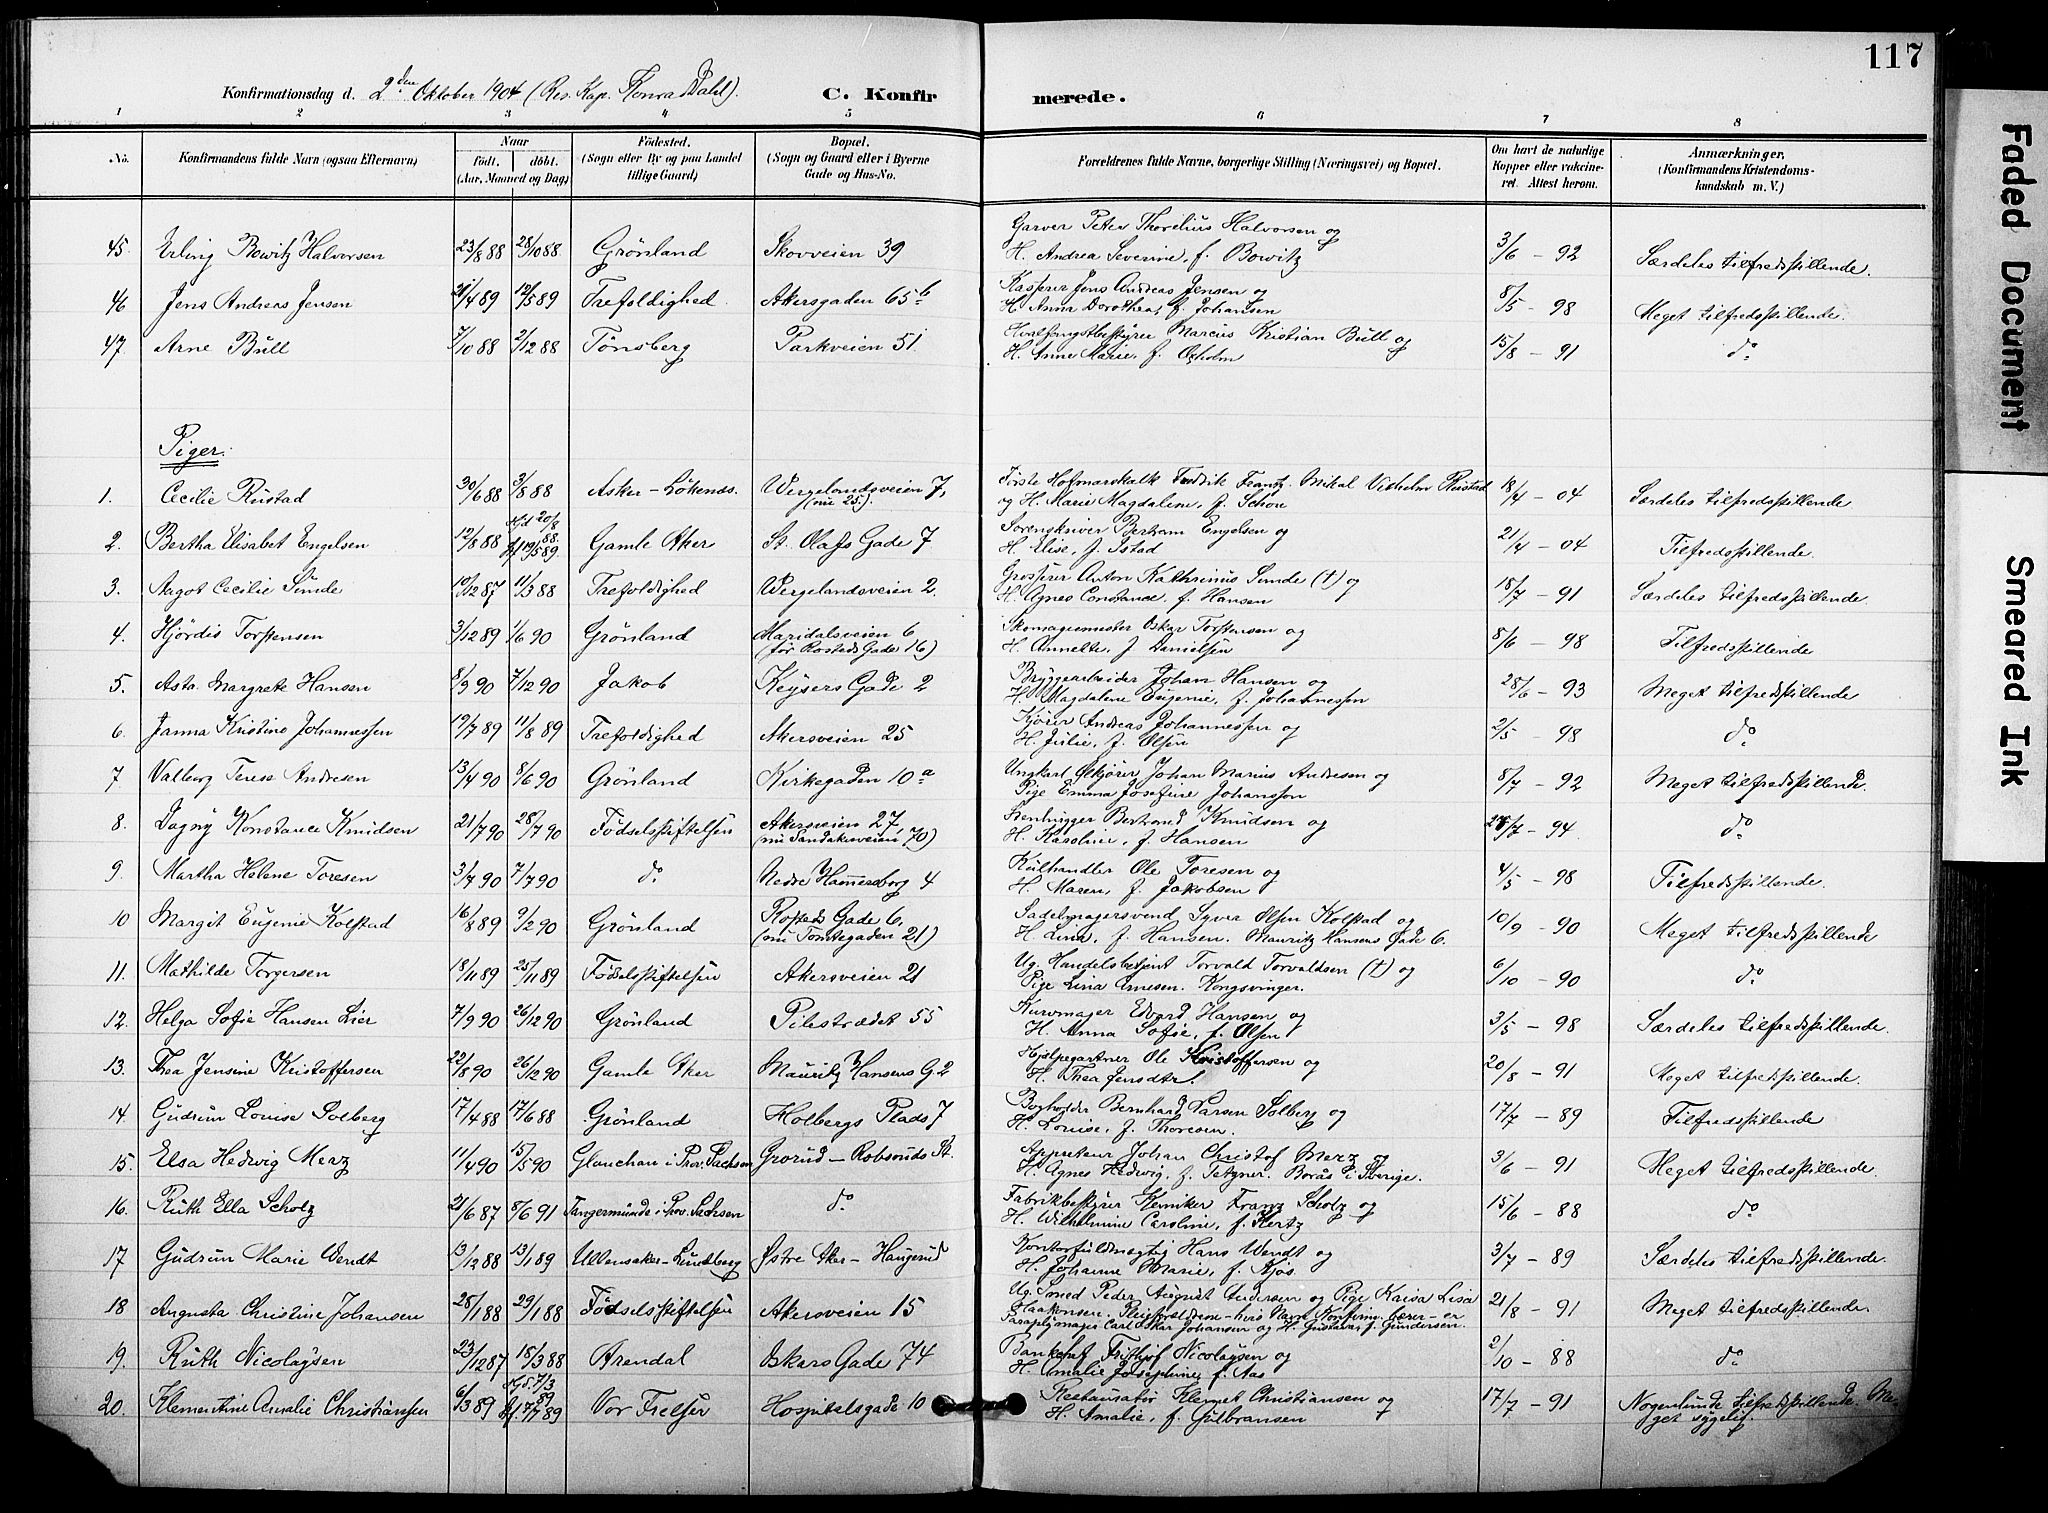 117
Konfirmationsdag d. 2den Oktober 1904 (Res. Kap. Konra Dahl). C. Konfirmerede.
1 2 3 4 5 6 7 8
No. Konfirmandens fulde Navn (ogsaa Efternavn) Naar født, døbt. (Aar, Maaned og Dag) Fødested. (Sogn eller By og paa Landet tillige Gaard) Bopæl. (Sogn og Gaard eller i Byerne Gade og Hus-No. Forældrenes fulde Navne, borgerlige Stilling (Næringsvei) og Bopæl. Om havt de naturlige Kopper eller vakcineret. Attest herom. Anmærkninger. (Konfirmandens Kristendomskundskab m. V.)
45. Erling Bowitz Halvorsen 23/8 88 28/10 88 Grønland Skovveien 39 Garver Peter Thorelius Halvorsen og
H. Andrea Severine, f. Bowitz 3/6 - 92 Særdeles tilfredsstillende.
46 Jens Andreas Jensen 21/4 89 12/5 89 Trefoldighed Akersgaden 65b Kasserer Jens Andreas Jensen og
H. Anna Dorothea, f. Johansen 8/5 - 98 Meget tilfredsstillende.
47 Arne Bull 7/10 88 2/12 88 Tønsberg Parkveien 51 Hvalfangstbestyrer Marcus Kristian Bull og
H. Anne Marie, f. Oxholm 15/8 - 91 do
Piger.
1. Cecilie Rustad 30/6 88 3/8 88 Asker - Løkends. Wergelandsveien 7, (nu 25). Første Hofmarskalk Fredrik Frantz Mikal Vilhelm Rustad
og H. Marie Magdalene, f. Schou 18/4 - 04 Særdeles tilfredsstillende
2. Bertha Elisabet Engelsen 12/8 88 Hjd 20/8 88. Gamle Aker St. Olafs Gade 7 Sorenskriver Bertram Engelsen og
H. Elise, f. Istad 21/4 - 04 Tilfredsstillende.
3. Aagot Cecilie Sunde 10/12 87 11/3 88 Trefoldighed Wergelandsveien 2. Grosserer Anton Kathrinus Sunde (†) og
H. Agnes Constance, f. Hansen 18/7 - 91 Særdeles tilfredsstillende.
4. Hjørdis Torstensen 3/12 89 1/6 90 Grønland Maridalsveien 6 (før Rosteds Gade 16) Skomagermester Oskar Torstensen og
H. Annette, f. Danielsen 8/6 - 98 Tilfredsstillende
5. Asta Margrete Hansen 8/9 90 7/12 90 Jakob Keysers Gade 2 Bryggearbeider Johan Hansen og
H. Magdalene Eugenie, f. Johannessen 28/6 - 93 Meget tilfredsstillende
6. Janna Kristine Johannessen 19/7 89 11/8 89 Trefoldighed Akersveien 25 Kjører Andreas Johannessen og
H. Julie, f. Olsen 2/5 - 98 do
7 Valborg Terese Andresen 13/4 90 8/6 90 Grønland Kirkegaden 10a Ungkarl Ølkjører Johan Marius Andresen og
Pige Emma Josefine Johansson 8/7 - 92 Meget tilfredsstillende.
8. Dagny Konstance Knudsen 21/7 90 28/7 90 Fødselsstiftelsen Akersveien 27, (nu Sandakerveien 70) Stenhugger Bertrand Knudsen og
H. Karoline, f. Hansen /7 - 94 do
9. Martha Helene Toresen 3/7 90 7/7 90 do Nedre Hammersborg 4 Kulhandler Ole Toresen og
H. Maren, f. Jakobsen 4/5 - 98 Tilfredsstillende.
10 Margit Eugenie Kolstad 16/8 89 9/2 90 Grønland Rosteds Gade 6, (nu Tomtegaden 21) Sadelmagersvend Syver Olsen Kolstad og
H. Lina, f. Hansen. Mauritz Hansens Gade 6. 10/9 - 90 Meget tilfredsstillende
11. Mathilde Torgersen 18/11 89 25/11 89 Fødselsstiftelsen Akersveien 21 Ug. Handelsbetjent Torvald Torvaldsen (†) og
Pige Lina Arnesen. Kongsvinger. 6/10 - 90 do
12. Helga Sofie Hansen Lier 7/9 90 26/12 90 Grønland Pilestrædet 55 Kurvmager Edvard Hansen og
H. Anna Sofie, f. Olsen 3/5 - 98 Særdeles tilfredsstillende.
13. Thea Jensine Kristoffersen 22/8 90 26/12 90 Gamle Aker Mauritz Hansens G. 2 Hjælpegartner Ole Kristoffersen og
H. Thea Jensdtr. 20/8 - 91 Meget tilfredsstillende.
14. Gudrun Louise Solberg 17/4 88 17/6 88 Grønland Holbergs Plads 7 Bogholder Bernhard Larsen Solberg og
H. Louise, f. Thoresen. 17/7 - 89 Tilfredsstillende
15. Elsa Hedvig Merz 11/4 90 15/5 90 Glauchau i Prov. Sachsen Grorud - Robsruds St. Appreteur Johan Christof Merz og
H. Agnes Hedwig, f. Tetzner. Borås i Sverige. 3/6 - 91 Meget tilfredsstillende.
16. Ruth Ella Scholz 21/6 87 8/6 91 Tangermünde i Prov. Sachsen do Fabrikbestyrer Kemiker Franz Scholz og
H. Wilhelmine Caroline, f. Hertz 15/6 - 88 do
17 Gudrun Marie Wendt 13/12 88 13/1 89 Ullensaker - Lundberg Østre Aker - Haugerud Kontorfuldmægtig Hans Wendt og
H. Johanne Marie, f. Kjøs. 3/7 - 89 Særdeles tilfredsstillende.
18 Augusta Christine Johansen 25/1 88 29/1 88 Fødselsstiftelsen Akersveien 15 Ug. Smed Peder August Andersen og Pige Kaisa Lisa
Haakonsen. Pleieforældrene - hvis Navn Konfirm. bærer - er
Paraplymager Carl Oskar Johansen og H. Gustava, f. Gundersen. 21/8 - 91 Meget tilfredsstillende.
19. Ruth Nicolaysen 23/12 87 18/3 88 Arendal Oskars Gade 74 Bankchef Fritthjof Nicolaysen og
H. Amalie Josephine, f. Aas 2/10 - 88 do
20. Klementine Amalie Christiansen 6/3 89 Hjd. 7/3 89 Vor Frelser Hospitalsgade 10 Restauratør Klemet Christiansen og
H. Amalie, f. Gulbransen 17/7 - 91 Nogenlunde tilfredsstillende. Meget sygelig.
Faded Document
Smeared Ink